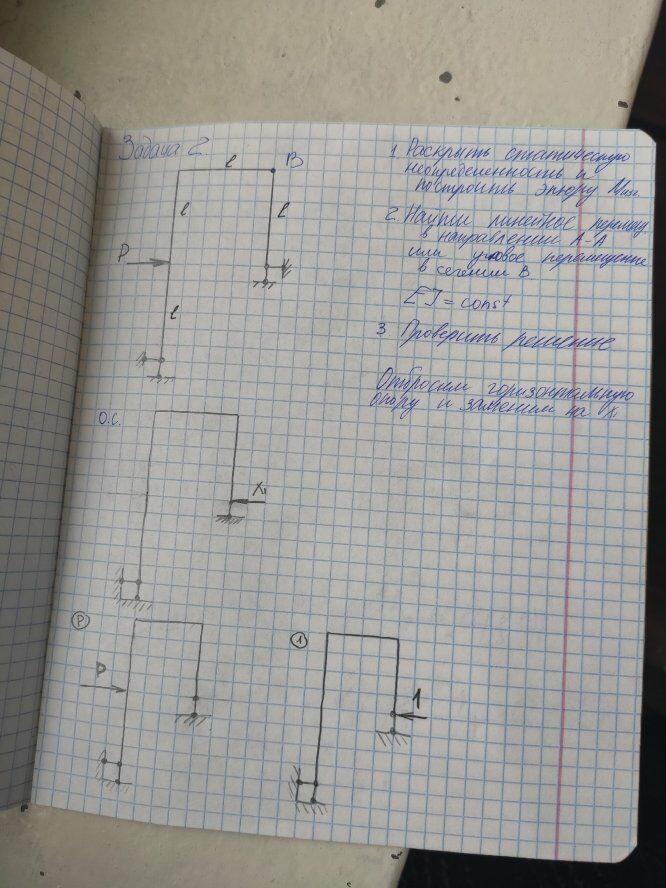 Задача 2.
l
B
l
l
P
l
1. Раскрыть статическую
неопределенность и
построить эпюру Mизг.
2. Найти линейное перемещ
в направлении А-А
или угловое перемещение
в сечении В
EJ = const
3 Проверить решение
Отбросим горизонтальную
опору и заменим на X1
О.С.
X1
P
P
1
1